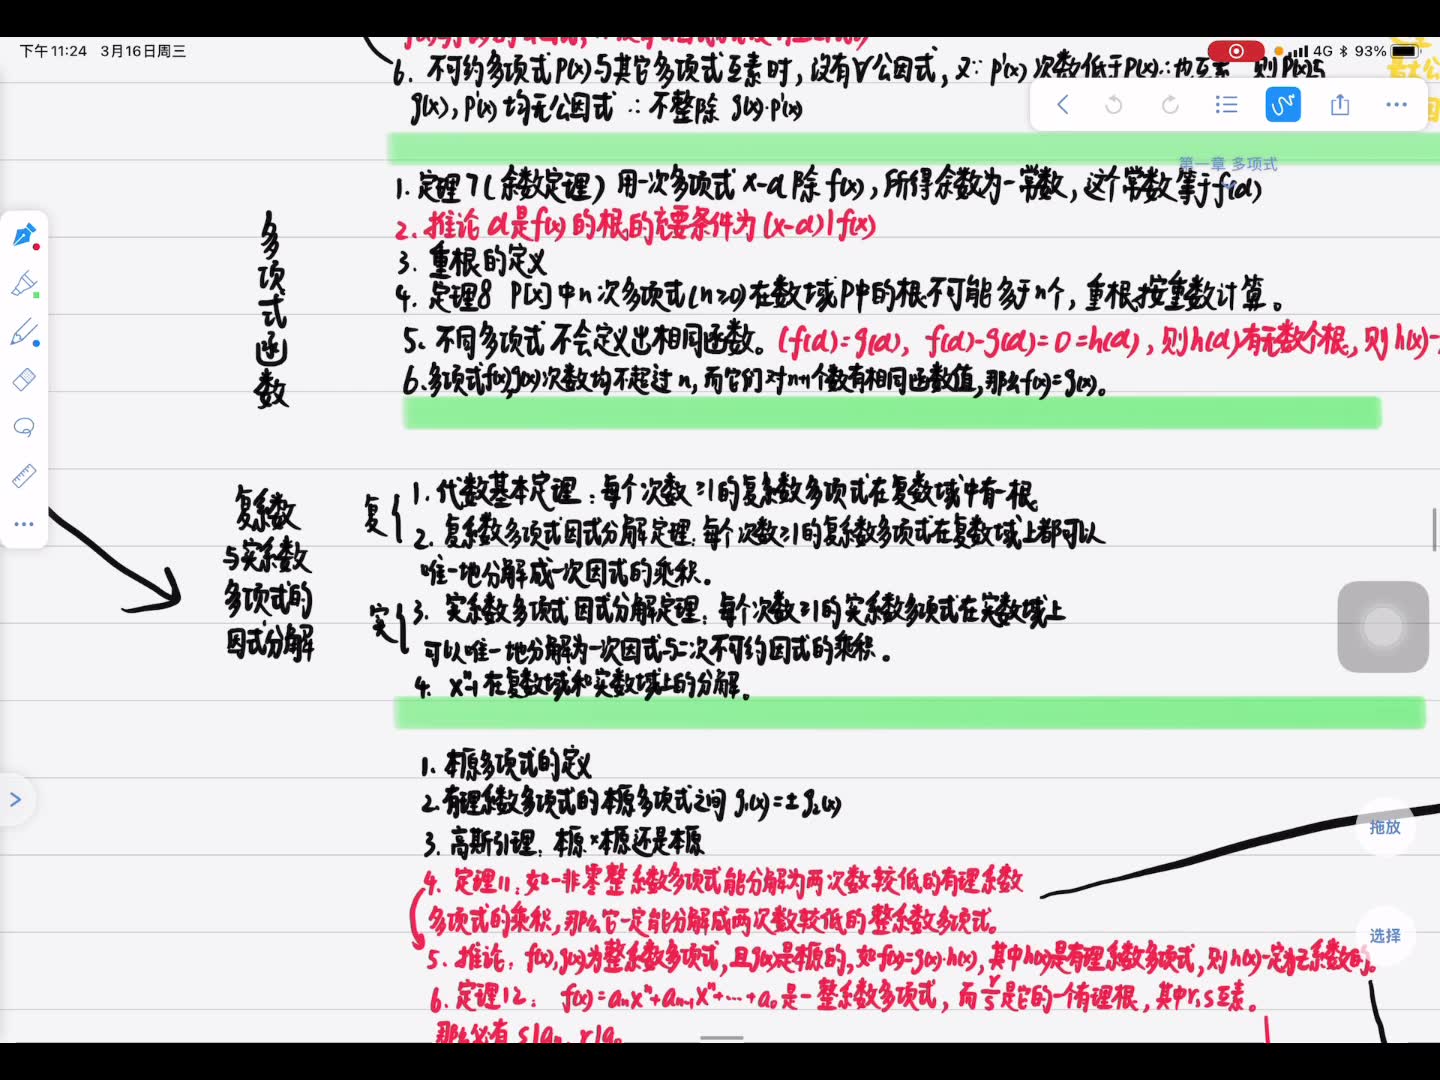 下午11:24 3月16日周三
4G 93%
6. 不可约多项式P(x)与其它多项式互素时,没有∀公因式,又∵p'(x)次数低于P(x)∴也互素 则P(x)与
g(x), p'(x)均无公因式 ∴不整除 g(x)·p'(x)
第一章 多项式
多项式函数
1. 定理7(余数定理) 用一次多项式 x-α 除 f(x),所得余数为一常数,这个常数等于f(α)
2. 推论 α是f(x)的根的充要条件为 (x-α)|f(x)
3. 重根的定义
4. 定理8 P[x]中n次多项式(n≥0)在数域P中的根不可能多于n个,重根按重数计算。
5. 不同多项式不会定义出相同函数。(f(α)=g(α), f(α)-g(α)=0=h(α),则h(α)有无数个根,则h(x)=
6. 多项式f(x),g(x)次数均不超过n,而它们对n+1个数有相同函数值,那么f(x)=g(x)。
复系数
与实系数
多项式的
因式分解
复
1. 代数基本定理:每个次数≥1的复系数多项式在复数域中有一根。
2. 复系数多项式因式分解定理:每个次数≥1的复系数多项式在复数域上都可以
唯一地分解成一次因式的乘积。
实
3. 实系数多项式因式分解定理:每个次数≥1的实系数多项式在实数域上
可以唯一地分解为一次因式与二次不可约因式的乘积。
4. xⁿ-1在复数域和实数域上的分解。
1. 本原多项式的定义
2. 有理系数多项式的本原多项式之间 g₁(x)=±g₂(x)
3. 高斯引理:本原×本原还是本原
4. 定理11:如一非零整系数多项式能分解为两次数较低的有理系数
多项式的乘积,那么它一定能分解成两次数较低的整系数多项式。
5. 推论:f(x),g(x)为整系数多项式,且g(x)是本原的,如f(x)=g(x)·h(x),其中h(x)是有理系数多项式,则h(x)一定为Z系数的。
6. 定理12: f(x)=aₙxⁿ+aₙ₋₁xⁿ⁻¹+…+a₀是一整系数多项式,而r/s是它的一个有理根,其中r,s互素。
那么必有 s|aₙ, r|a₀
拖放
选择